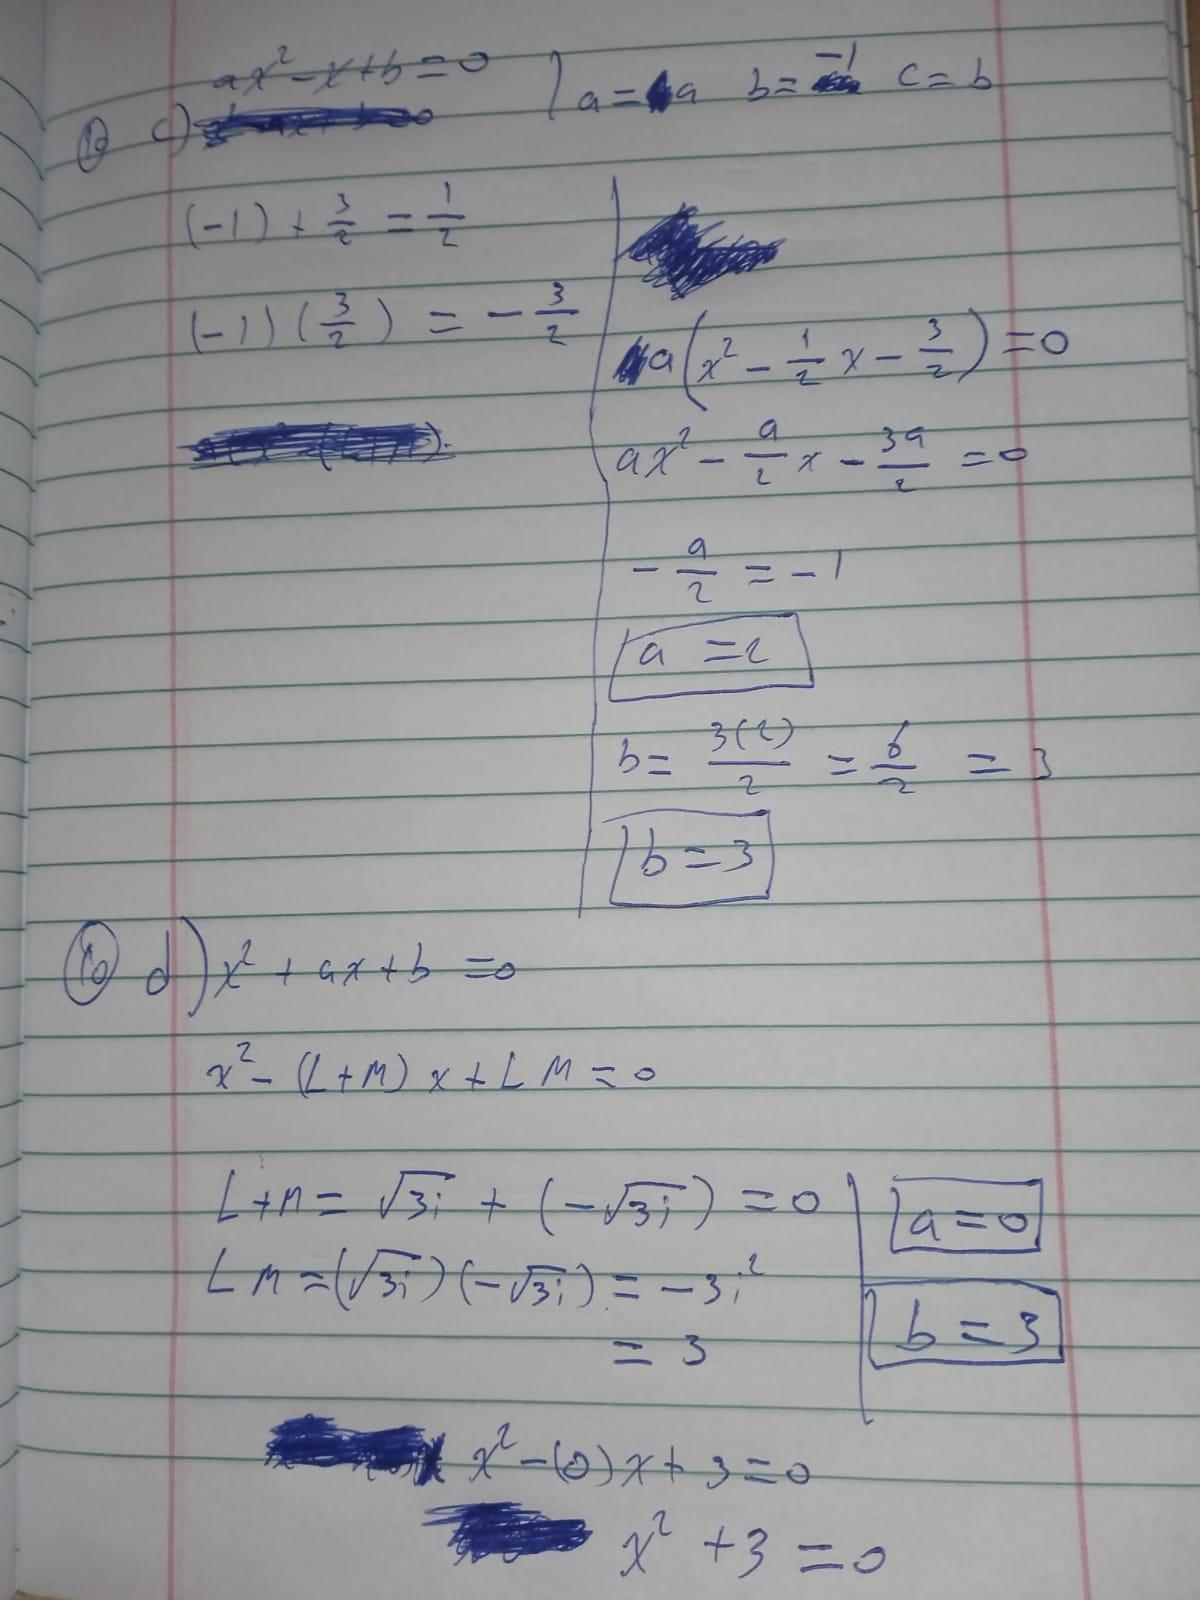 ax² - x + b = 0 | a = a b = -1 c = b
10 c)
(-1) + 3/2 = 1/2
(-1)(3/2) = - 3/2
a(x² - 1/2 x - 3/2) = 0
ax² - a/2 x - 3a/2 = 0
- a/2 = -1
a = 2
b = 3(2)/2 = 6/2 = 3
b = 3
10 d) x² + ax + b = 0
x² - (L+M) x + L M = 0
L+M = √3i + (-√3i) = 0
L M = (√3i)(-√3i) = -3i²
= 3
a = 0
b = 3
x² - (0)x + 3 = 0
x² + 3 = 0